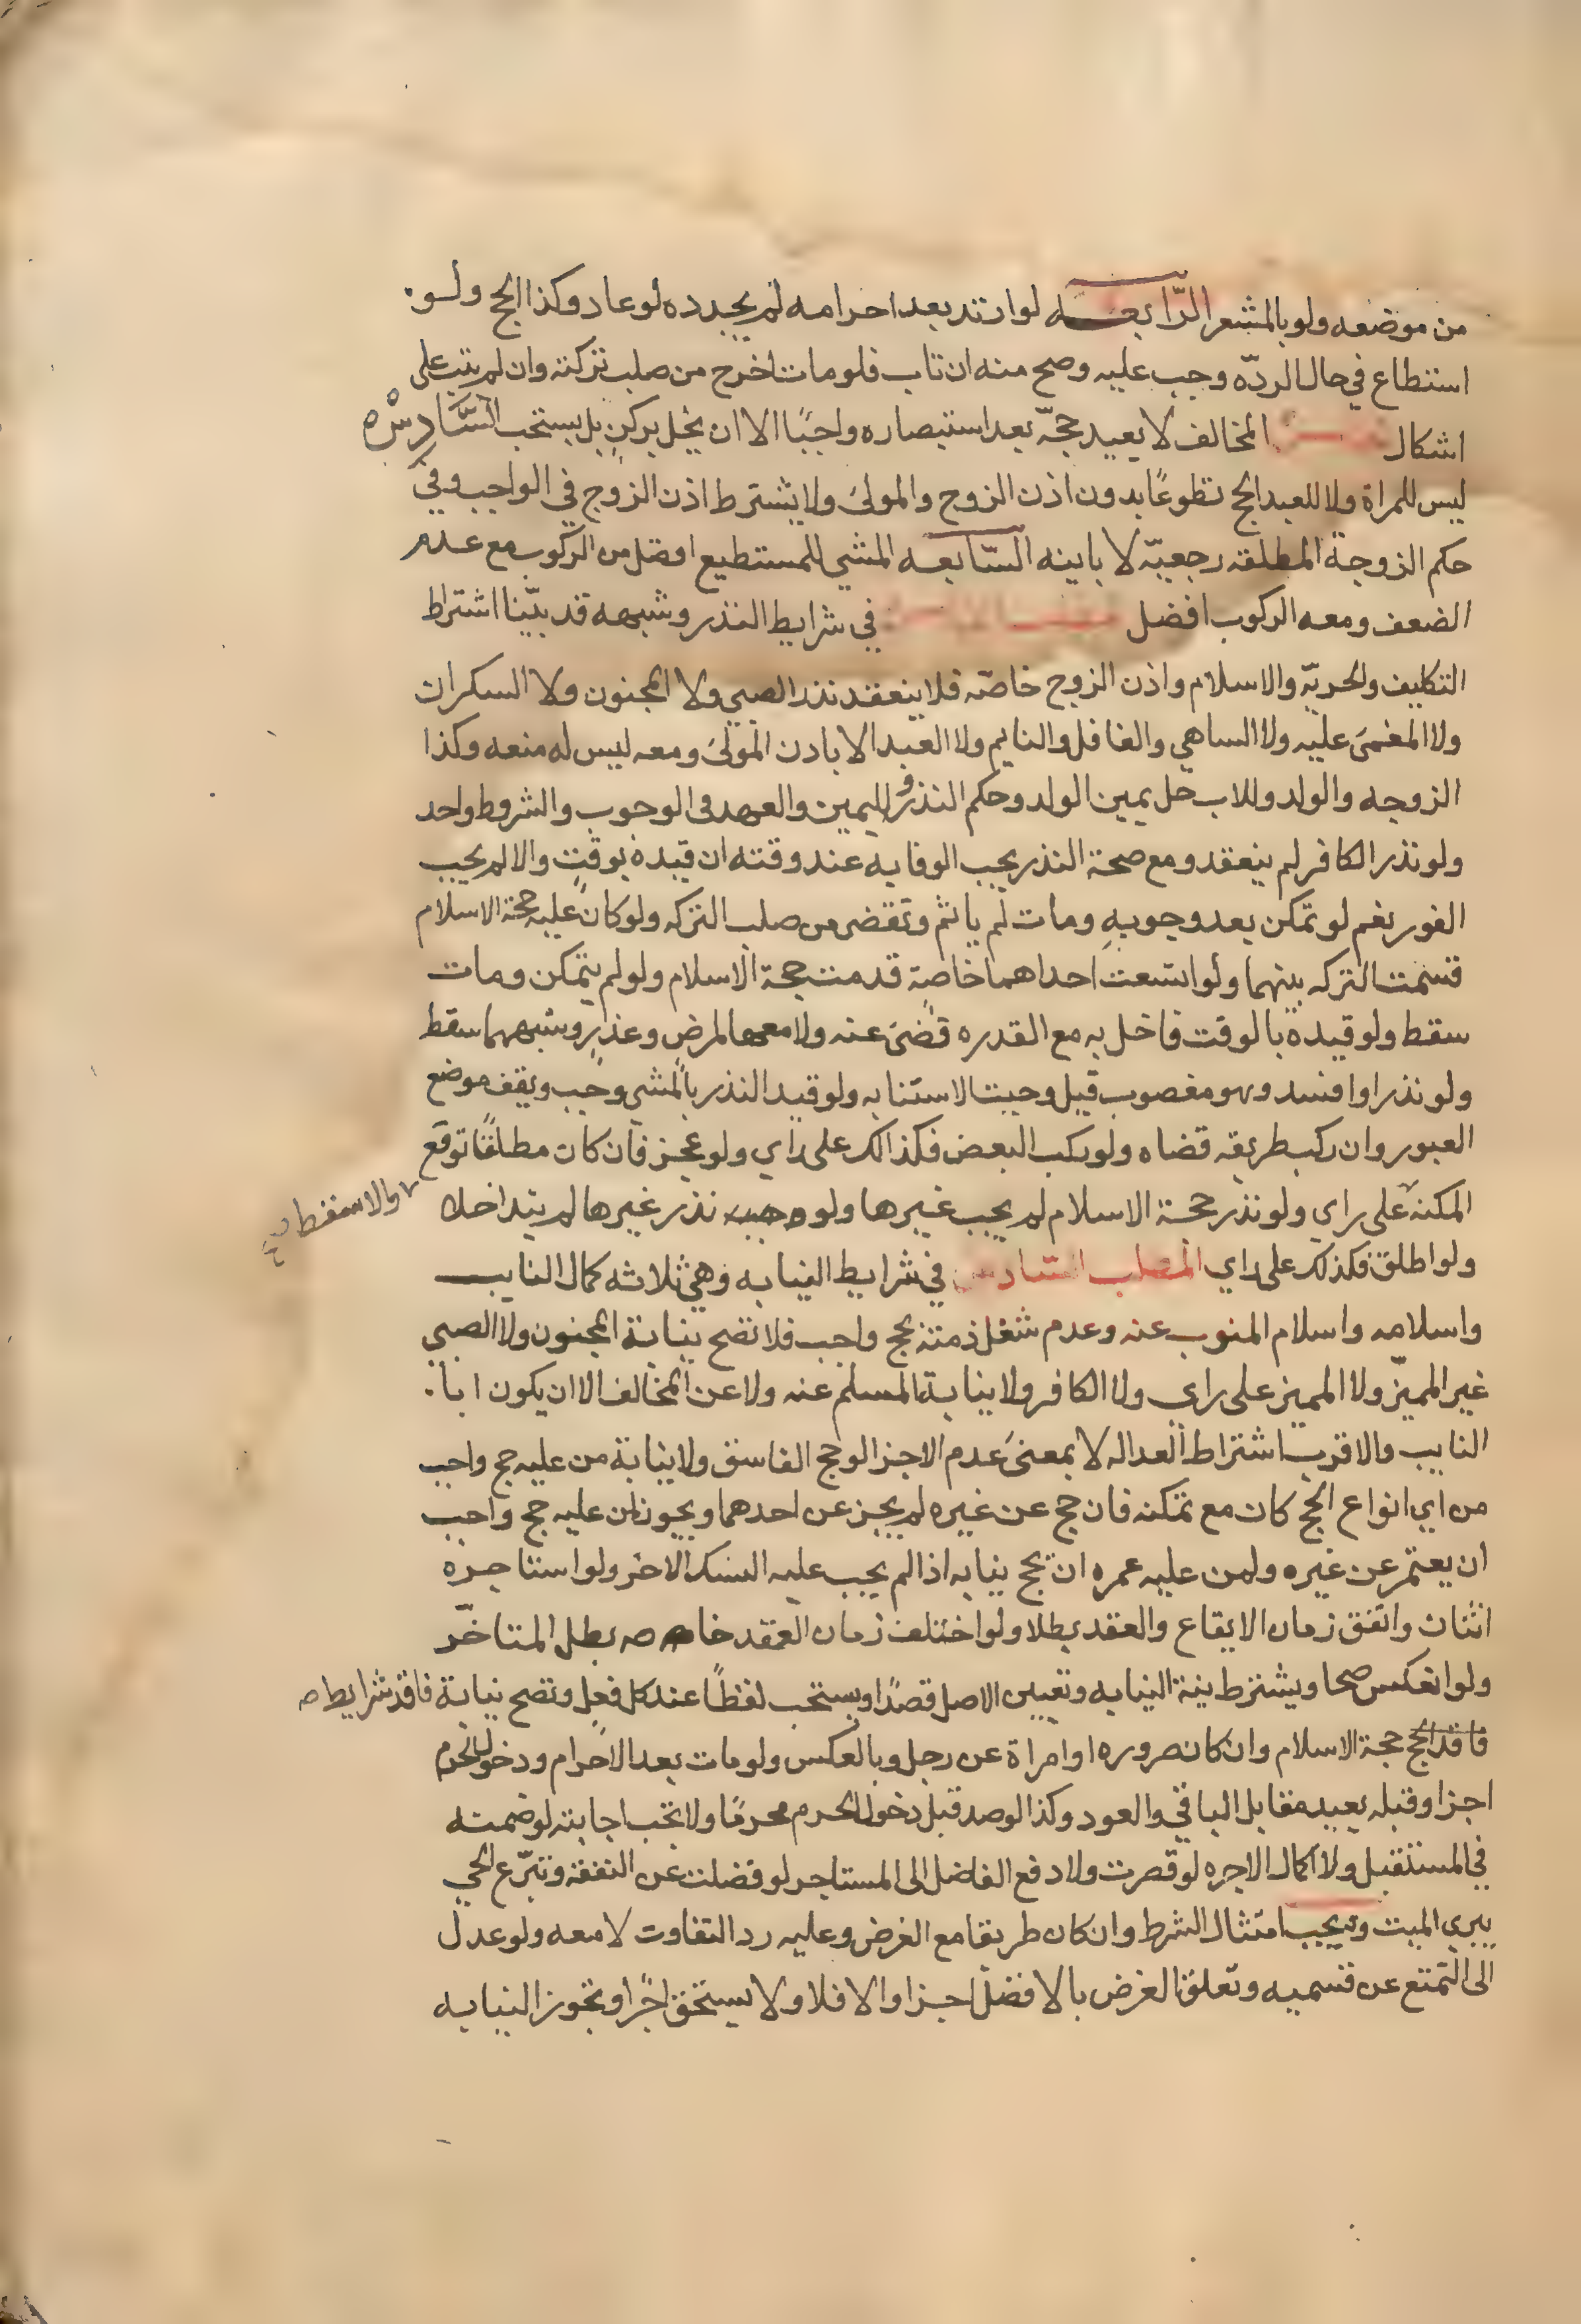 من موضعه ولو بالمشعر الرّابعه لو ارتد بعد احرامه لم يجدده لو عاد وكذا الحج ولو
استطاع في حال الردّه وجب عليه وصح منه ان تاب فلو مات اخرج من صلب تركته وان لم يتب على
اشكال المخالف لا يعيد حجّه بعد استبصاره واجبًا الا ان يخل بركن بل يستحب السّادسه
ليس للمراة ولا للعبد الحج تطوعًا بدون اذن الزوج والمولى ولا يشترط اذن الزوج في الواجب وفي
حكم الزوجة المطلقه رجعيّه لا باينه السّابعه المشي للمستطيع افضل من الركوب مع عدم
الضعف ومعه الركوب افضل في شرايط النذر وشبهه قد بيّنا اشتراط
التكليف والحريّه والاسلام واذن الزوج خاصّه فلا ينعقد نذر الصبي ولا المجنون ولا السكران
ولا المغمى عليه ولا الساهي والغافل والنايم ولا العبد الا باذن المولى ومعه ليس له منعه وكذا
الزوجه والولد وللاب حل يمين الولد وحكم النذر واليمين والعهد في الوجوب والشروط واحد
ولو نذر الكافر لم ينعقد ومع صحة النذر يجب الوفا به عند وقته ان قيده بوقت والا لم يجب
الفور نعم لو تمكن بعد وجوبه ومات لم ياثم وتقضى من صلب التركه ولو كان عليه حجة الاسلام
قسمت التركه بينهما ولو اتسعت احداهما خاصة قدمت حجة الاسلام ولو لم يتمكن ومات
سقط ولو قيده بالوقت فاخل به مع القدره قضى عنه ولا معها لمرض وعذر وشبههما سقط
ولو نذر او افسد وهو مغصوب قيل وجبت الاستنابه ولو قيد النذر بالمشي وجب ويقف موضع
العبور وان ركب طريقه قضاه ولو ركب البعض فكذلك على راي ولو عجز فان كان مطلقًا توقع
المكنة على راي ولو نذر حجة الاسلام لم يجب غيرها ولو وجب نذر غيرها لم يتداخلا
والا سقط
ولو اطلق فكذلك على راي المطلب السّادس في شرايط النيابه وهي ثلاثه كمال النايب
واسلامه واسلام المنوب عنه وعدم شغل ذمته بحج واجب فلا تصح نيابة المجنون ولا الصبي
غير المميّز ولا المميز على راي ولا الكافر ولا نيابة المسلم عنه ولا عن المخالف الا ان يكون ابا
النايب والاقرب اشتراط العداله لا بمعنى عدم الاجزا لو حج الفاسق ولا نيابة من عليه حج واجب
من اي انواع الحج كان مع تمكنه فان حج عن غيره لم يجز عن احدهما ويجوز لمن عليه حج واجب
ان يعتمر عن غيره ولمن عليه عمره ان يحج نيابه اذا لم يجب عليه النسك الاخر ولو استاجره
اثنان واتفق زمان الايقاع والعقد بطلا ولو اختلف زمان العقد خاصه بطل المتاخّر
ولو انعكس صحا ويشترط نية النيابه وتعيين الاصل قصدًا ويستحب لفظًا عند كل فعل وتصح نيابة فاقد شرايط
فاقد الحج حجة الاسلام وان كان صروره او امراة عن رجل وبالعكس ولو مات بعد الاحرام ودخول الحرم
اجزا وقبله يعيد مقابل الباقي والعود وكذا لو صد قبل دخول الحرم محرمًا ولا تجب اجابته لو ضمنه
في المستقبل ولا اكمال الاجره لو قصرت ولا دفع الفاضل الى المستاجر لو فضلت عن النفقه وتبرّع الحي
يبري الميت ويجب امتثال الشرط وان كان طريقا مع الغرض وعليه رد التفاوت لا معه ولو عدل
الى التمتع عن قسميه وتعلق الغرض بالافضل اجزا والا فلا ولا يستحق اجرًا وتجوز النيابه